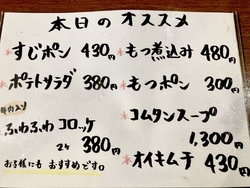 本日のオススメ
*すじポン 430円
*ポテトサラダ 380円
牛肉入り
*ふわふわコロッケ
2ヶ 380円
お子様にもおすすめです。
*もつ煮込み 480円
*もつポン 300円
コムタンスープ
1,300円
*オイキムチ 430円